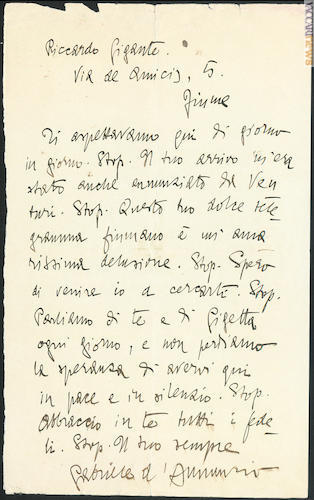 Riccardo Gigante.
Via de Amicis, 
Fiume
Ti aspettavamo qui di giorno
in giorno. Stop. Il tuo arrivo m'era
stato anche annunziato da Ven
turi. Stop. Questo tuo dolce tele
gramma fiumano è un' ama
rissima delusione. Stop. Spero
di venire io a cercarti. Stop.
Parliamo di te e di Gigetta
ogni giorno, e non perdiamo
la speranza di avervi qui
in pace e in silenzio. Stop.
Abbraccio in te tutti i fede
li. Stop. Il tuo sempre
Gabriele d'Annunzio
VACCARI NEWS